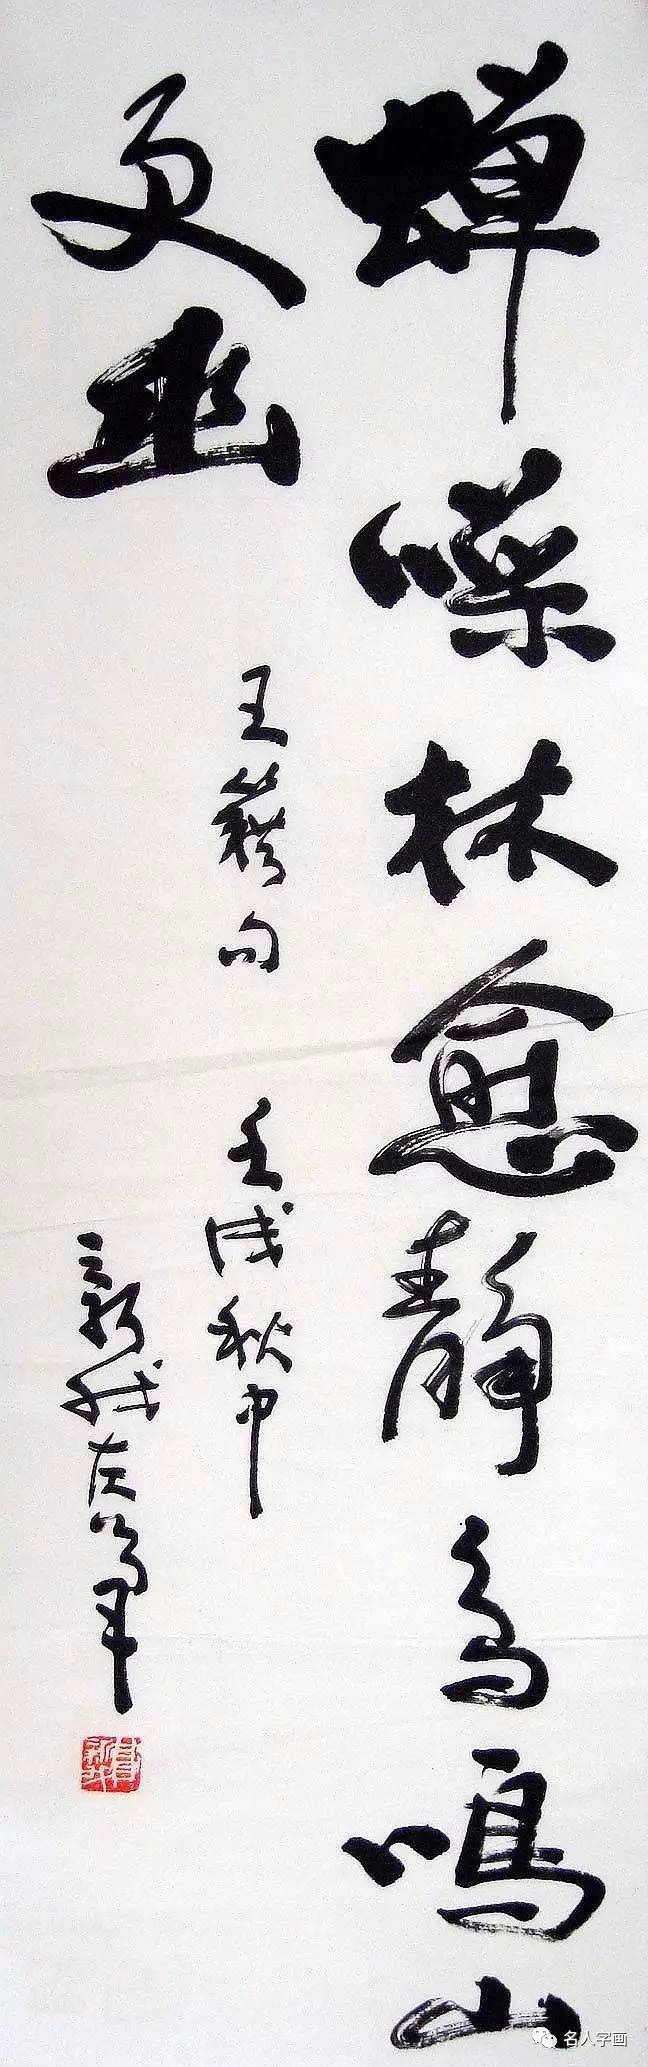 蝉噪林愈静鸟鸣山
更幽
王籍句 壬戌秋中
新我左笔
费新我
名人字画